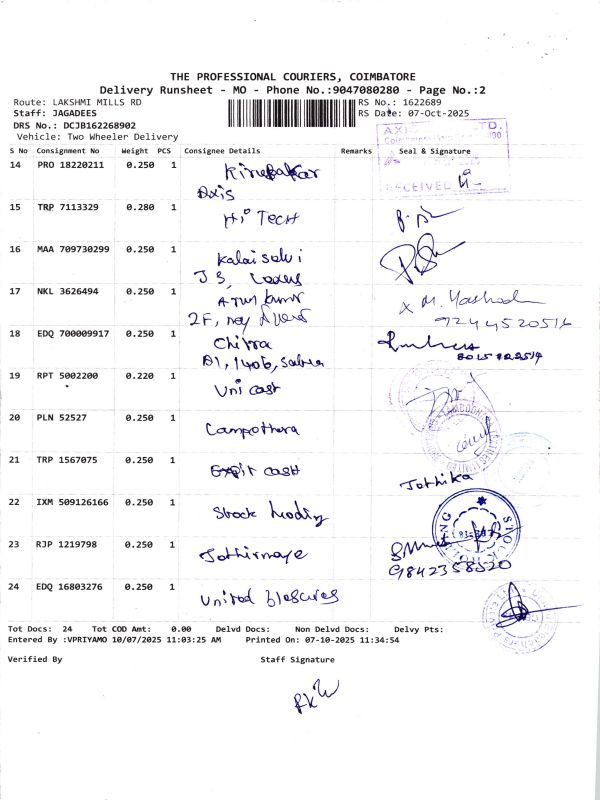 THE PROFESSIONAL COURIERS, COIMBATORE
Delivery Runsheet - MO - Phone No.:9047080280 - Page No.:2
Route: LAKSHMI MILLS RD
RS No.: 1622689
Staff: JAGADEES
RS Date: 07-Oct-2025
DRS No.: DCJB162268902
Vehicle: Two Wheeler Delivery
S No Consignment No Weight PCS Consignee Details Remarks Seal & Signature
14 PRO 18220211 0.250 1 Kirubakar
Axis
RECEIVED
15 TRP 7113329 0.280 1 Hi Tech
16 MAA 709730299 0.250 1 Kalaiselvi
J S
17 NKL 3626494 0.250 1 Arun kumar
2F,
X M. Yashoda
9244520516
18 EDQ 700009917 0.250 1 Chitra
B1, 1406,
19 RPT 5002200 0.220 1 Uni cash
20 PLN 52527 0.250 1
21 TRP 1567075 0.250 1 cash
Jothika
22 IXM 509126166 0.250 1 Stock
23 RJP 1219798 0.250 1
9842358520
24 EDQ 16803276 0.250 1 United
Tot Docs: 24 Tot COD Amt: 0.00 Delvd Docs: Non Delvd Docs: Delvy Pts:
Entered By :VPRIYAMO 10/07/2025 11:03:25 AM Printed On: 07-10-2025 11:34:54
Verified By Staff Signature